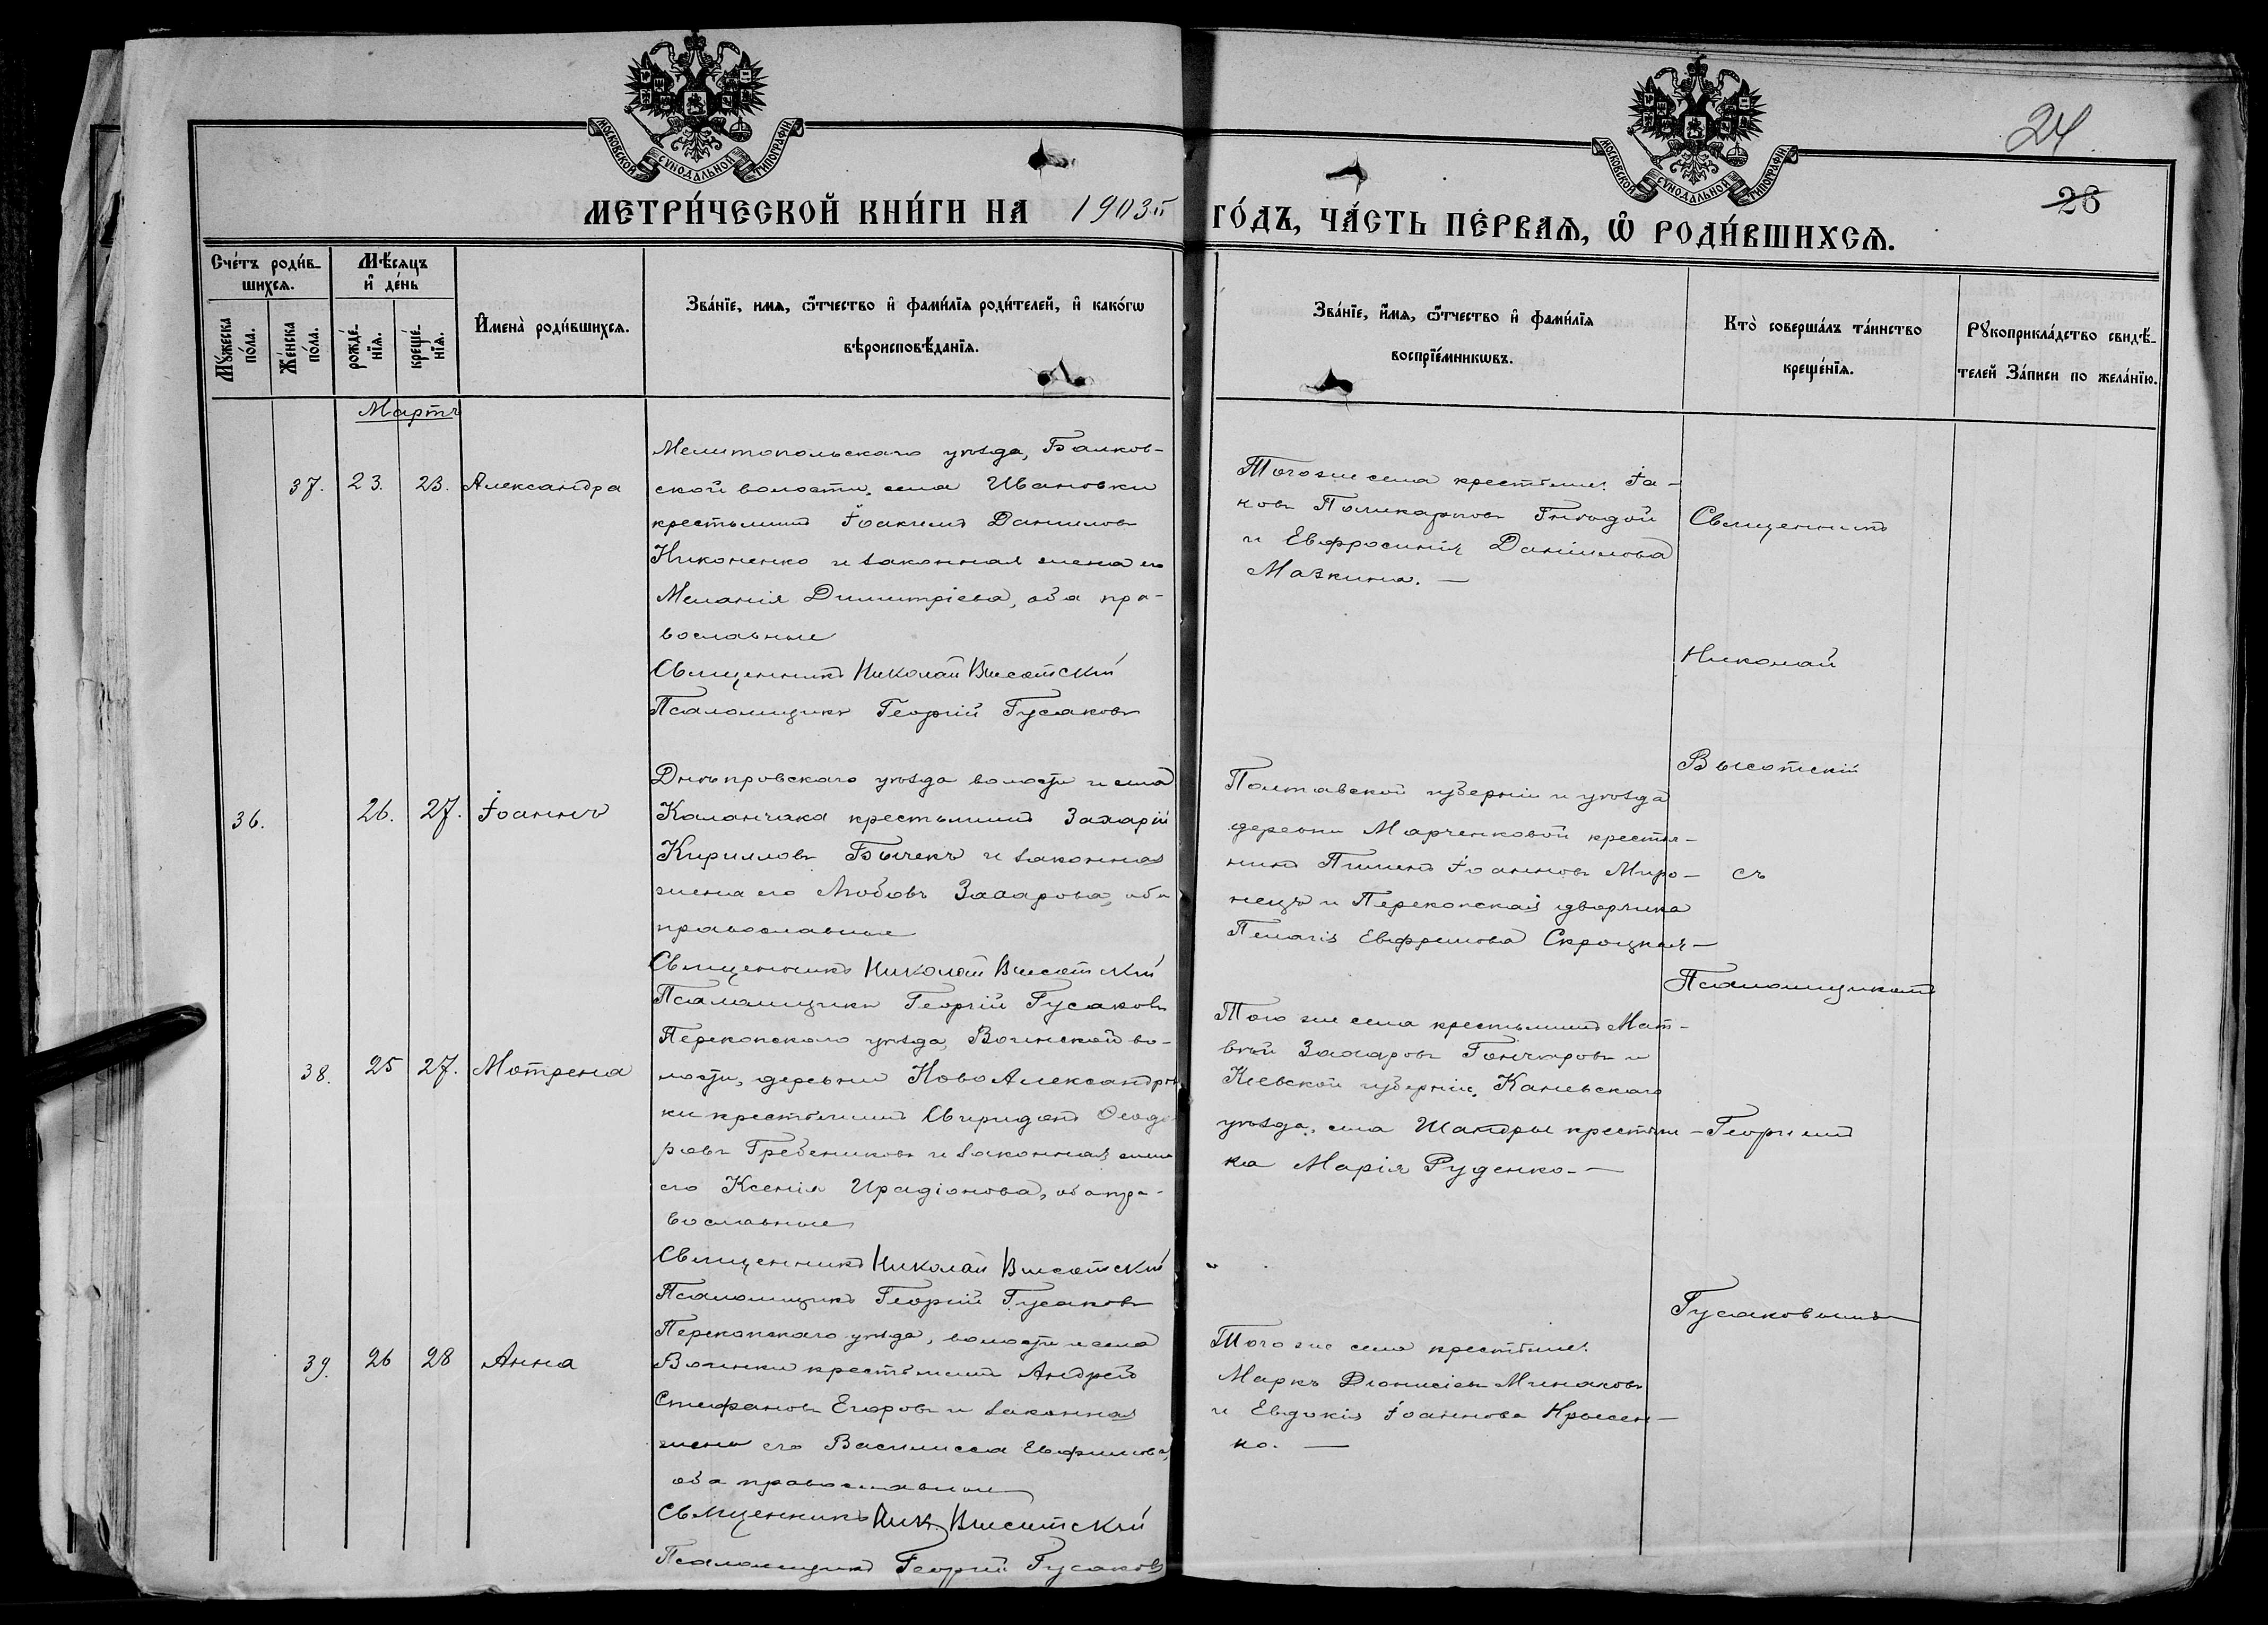 МОСКОВСКОЙ СУНОДАЛЬНОЙ ТИПОГРАФІИ
МОСКОВСКОЙ СУНОДАЛЬНОЙ ТИПОГРАФІИ
24.
26
МЕТРИ́ЧЕСКОЙ КНИ́ГИ НА 1903й ГО́ДЪ, ЧА́СТЬ ПЕ́РВАѦ, Ѡ҆ РОДИ́ВШИХСѦ.
Сче́тъ роди́в-
шихсѧ.
Мꙋжеска по́ла.
Же́нска по́ла.
Мѣ́сѧцъ и҆ де́нь
рожде́-нїѧ.
креще́-нїѧ.
И҆мена̀ роди́вшихсѧ.
Зва́нїе, имѧ, ѻ҆́тчество и҆ фами́лїѧ роди́телей, и҆ како́гѡ
вѣроисповѣ́данїѧ.
Зва́нїе, и҆́мѧ, ѻ҆́тчество и҆ фами́лїѧ
воспрїе́мникѡвъ.
Кто̀ соверша́лъ та́инство
креще́нїѧ.
Рꙋкоприкла́дство свидѣ́-
телей За́писи по жела́нїю.
Мартъ
37. 23. 23. Александра
Мелитопольскаго уѣзда, Балков-
ской волости, села Ивановки
крестьянинъ Іоакимъ Даниловъ
Никоненко и законная жена его
Меланія Димитріева, оба пра-
вославные
Священникъ Николай Высотскій
Псаломщикъ Георгій Гусаковъ
Того же села крестьяне: Іа-
ковъ Поликарповъ Гнѣдой
и Евфросинія Даніилова
Мазкина. —
Священникъ
Николай
Высотскій
съ
Псаломщикомъ
Георгіемъ
Гусаковымъ
36. 26. 27. Іоаннъ
Днѣпровскаго уѣзда волости и села
Каланчака крестьянинъ Захарій
Кирилловъ Бычекъ и законная
жена его Любовь Захарова, оба
православные
Священникъ Николай Высотскій
Псаломщикъ Георгій Гусаковъ
Полтавской губерніи и уѣзда
деревни Марченковой крестья-
нинъ Пименъ Іоанновъ Миро-
нецъ и Перекопская дворянка
Пелагія Евфремова Скроцкая —
38. 25 27. Мотрена
Перекопскаго уѣзда, Воинской во-
лости, деревни Ново Александров
ки крестьянинъ Свиридонъ Ѳеодо
ровъ Гребениковъ и законная жена
его Ксенія Ирадіонова, оба пра-
вославные
Священникъ Николай Высотскій
Псаломщикъ Георгій Гусаковъ
Того же села крестьянинъ Мат-
вѣй Захаровъ Гончаровъ и
Кіевской губерніи, Каневскаго
уѣзда, села Шандры крестьян-
ка Марія Руденко. —
39. 26 28 Анна
Перекопскаго уѣзда, волости и села
Воинки крестьянинъ Андрей
Стефановъ Егоровъ и законная
жена его Василисса Евфимова,
оба православные
Священникъ Ник. Высотскій
Псаломщикъ Георгій Гусаковъ
Того же села крестьяне:
Маркъ Діонисіевъ Минаковъ
и Евдокія Іоаннова
ко. —